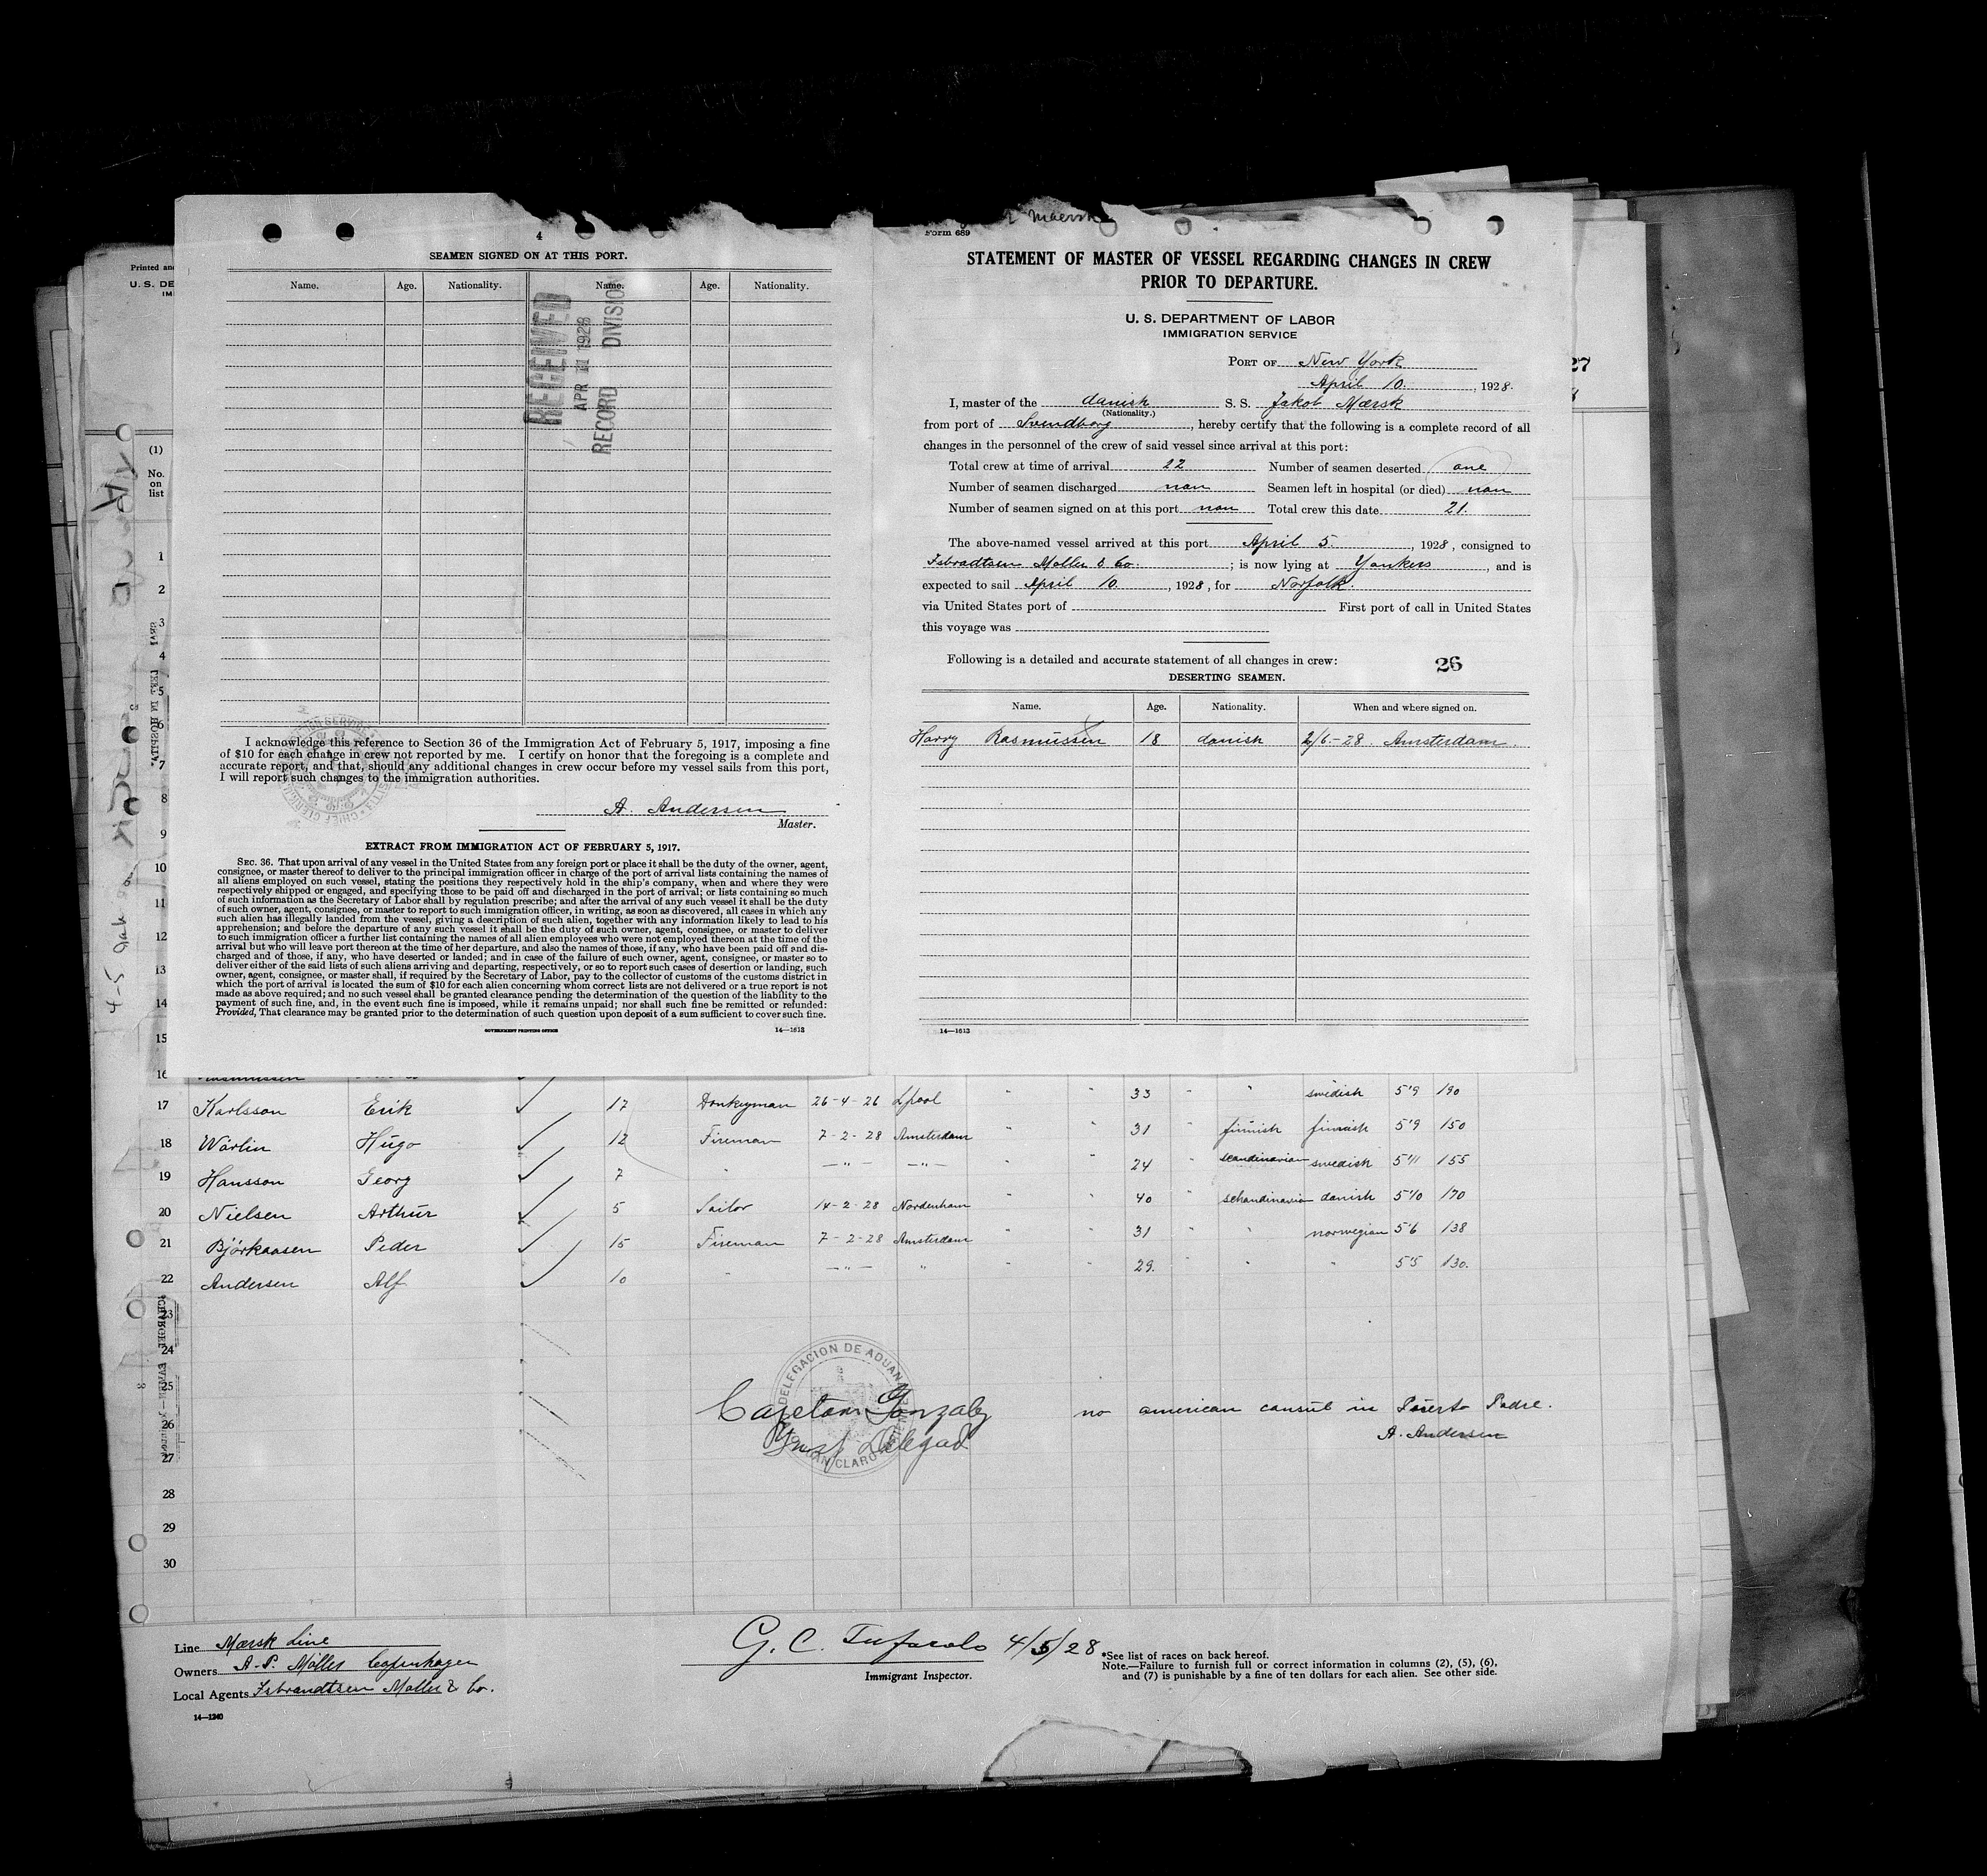 4
SEAMEN SIGNED ON AT THIS PORT.
Name. Age. Nationality. Name. Age. Nationality.
RECEIVED
APR 11 1928
RECORD DIVISION
I acknowledge this reference to Section 36 of the Immigration Act of February 5, 1917, imposing a fine
of $10 for each change in crew not reported by me. I certify on honor that the foregoing is a complete and
accurate report, and that, should any additional changes in crew occur before my vessel sails from this port,
I will report such changes to the immigration authorities.
A. Andersen
Master.
EXTRACT FROM IMMIGRATION ACT OF FEBRUARY 5, 1917.
SEC. 36. That upon arrival of any vessel in the United States from any foreign port or place it shall be the duty of the owner, agent,
consignee, or master thereof to deliver to the principal immigration officer in charge of the port of arrival lists containing the names of
all aliens employed on such vessel, stating the positions they respectively hold in the ship's company, when and where they were
respectively shipped or engaged, and specifying those to be paid off and discharged in the port of arrival; or lists containing so much
of such information as the Secretary of Labor shall by regulation prescribe; and after the arrival of any such vessel it shall be the duty
of such owner, agent, consignee, or master to report to such immigration officer, in writing, as soon as discovered, all cases in which any
such alien has illegally landed from the vessel, giving a description of such alien, together with any information likely to lead to his
apprehension; and before the departure of any such vessel it shall be the duty of such owner, agent, consignee, or master to deliver
to such immigration officer a further list containing the names of all alien employees who were not employed thereon at the time of the
arrival but who will leave port thereon at the time of her departure, and also the names of those, if any, who have been paid off and dis-
charged and of those, if any, who have deserted or landed; and in case of the failure of such owner, agent, consignee, or master so to
deliver either of the said lists of such aliens arriving and departing, respectively, or so to report such cases of desertion or landing, such
owner, agent, consignee, or master shall, if required by the Secretary of Labor, pay to the collector of customs of the customs district in
which the port of arrival is located the sum of $10 for each alien concerning whom correct lists are not delivered or a true report is not
made as above required; and no such vessel shall be granted clearance pending the determination of the question of the liability to the
payment of such fine, and, in the event such fine is imposed, while it remains unpaid; nor shall such fine be remitted or refunded:
Provided, That clearance may be granted prior to the determination of such question upon deposit of a sum sufficient to cover such fine.
GOVERNMENT PRINTING OFFICE 14—1613
Maersk
Form 689
STATEMENT OF MASTER OF VESSEL REGARDING CHANGES IN CREW
PRIOR TO DEPARTURE.
U. S. DEPARTMENT OF LABOR
IMMIGRATION SERVICE
PORT OF New York
April 10. , 1928.
I, master of the danish S. S. Jakob Mærsk
(Nationality.)
from port of Svendborg , hereby certify that the following is a complete record of all
changes in the personnel of the crew of said vessel since arrival at this port:
Total crew at time of arrival 22 Number of seamen deserted one
Number of seamen discharged non Seamen left in hospital (or died) non
Number of seamen signed on at this port non Total crew this date 21.
The above-named vessel arrived at this port April 5. , 1928, consigned to
Isbradtsen Moller & Co. ; is now lying at Yonkers , and is
expected to sail April 10. , 1928, for Norfolk.
via United States port of First port of call in United States
this voyage was
Following is a detailed and accurate statement of all changes in crew: 26
DESERTING SEAMEN.
Name. Age. Nationality. When and where signed on.
Harry Rasmussen 18 danish 2/6-28. Amsterdam.
14—1613
Printed and
U. S. DE
IM
27
(1)
No.
on
list
1
2
3
4
5
6
7
8
9
10
11
12
13
14
15
16 Rasmussen
17 Karlsson Erik 17 Donkeyman 26-4-26 Lpool " " 33 " " swedish 5'9 190
18 Warlin Hugo 12 Fireman 7-2-28 Amsterdam " " 31 " finnish finnish 5'9 150
19 Hansson Georg 7 " —"— —"— " " 24 " scandinavian swedish 5'11 155
20 Nielsen Arthur 5 Sailor 14-2-28 Nordenham " " 40 " schandinavian danish 5'10 170
21 Björkaasen Peder 15 Fireman 7-2-28 Amsterdam " " 31 " " norwegian 5'6 138
22 Andersen Alf 10 " —"— " " " 29. " " " 5'5 130.
23
24
25
26
27
28
29
30
DELEGACION DE ADUANA
Cayetano Gonzalez
no american consul in Puerto Padre.
A. Andersen
4-5 Jakob
Line Mærsk Line
Owners A.P. Möller Copenhagen
Local Agents Isbrandtsen Moller & Co.
14—1240
G. C. Tufarolo 4/5/28
Immigrant Inspector.
*See list of races on back hereof.
Note.—Failure to furnish full or correct information in columns (2), (5), (6),
and (7) is punishable by a fine of ten dollars for each alien. See other side.